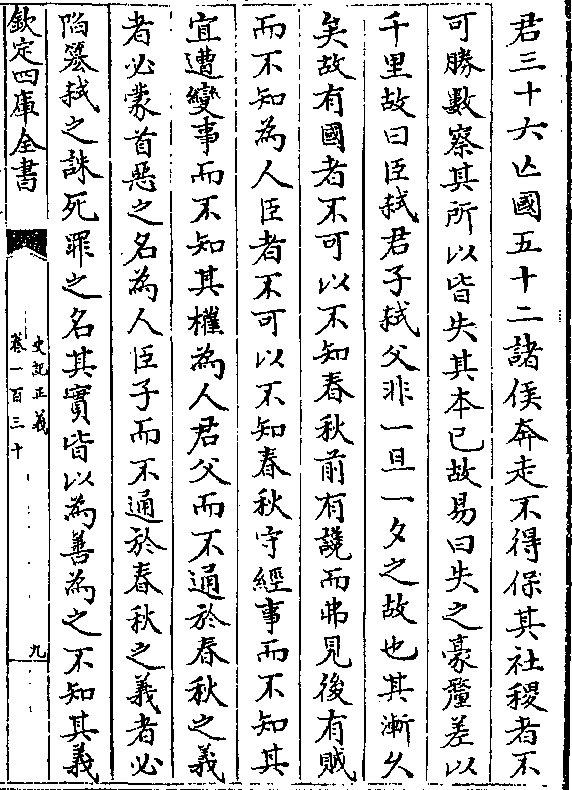 君三十六亡國五十二諸侯奔走不得保其社稷者不
可勝數察其所以皆失其本已故易曰失之豪釐差以
千里故曰臣弑君子弑父非一旦一夕之故也其漸久
矣故有國者不可以不知春秋前有讒而弗見後有賊
而不知為人臣者不可以不知春秋守經事而不知其
宜遭變事而不知其權為人君父而不通於春秋之義
者必蒙首惡之名為人臣子而不通於春秋之義者必
陷簒弑之誅死罪之名其實皆以為善為之不知其義
欽定四庫全書
史記正義
卷一百三十
九